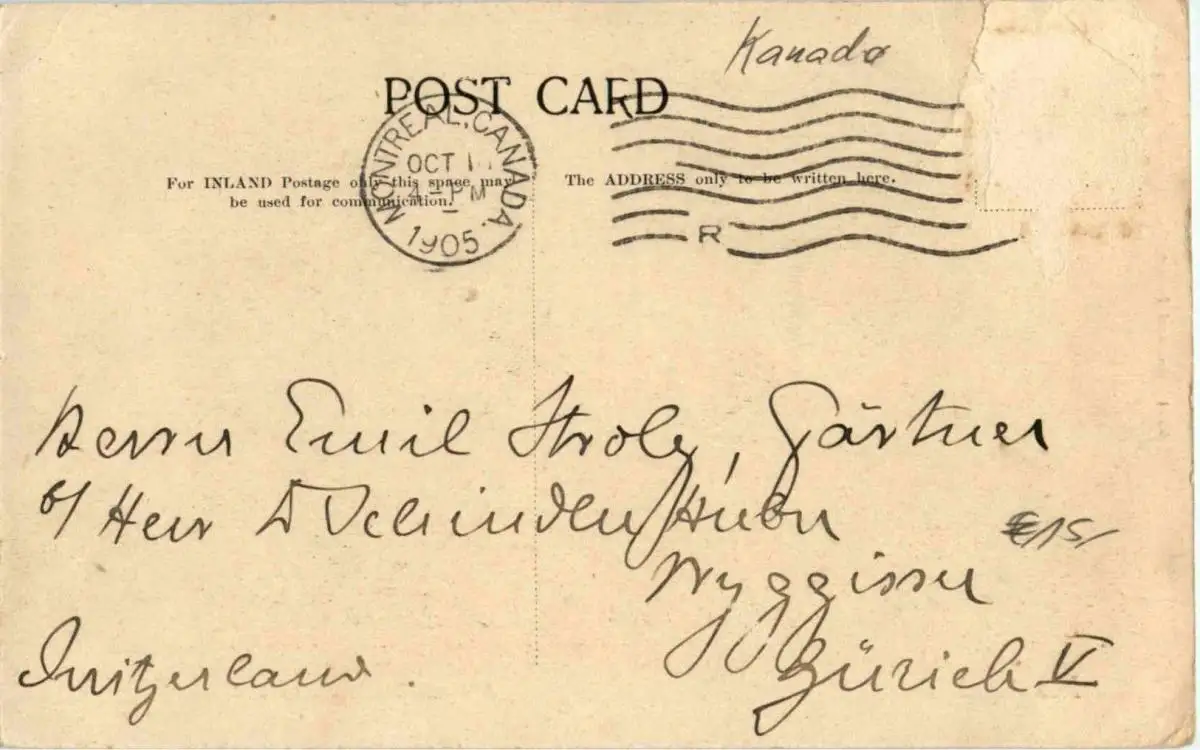 Kanada
POST CARD
MONTREAL, CANADA.
OCT 1
4 - PM
1905
For INLAND Postage only this space may
be used for communication.
The ADDRESS only to be written here.
R
Herrn Emil Stroly, Gärtner
b/ Herr
€15,-
Zürich V
Switzerland.